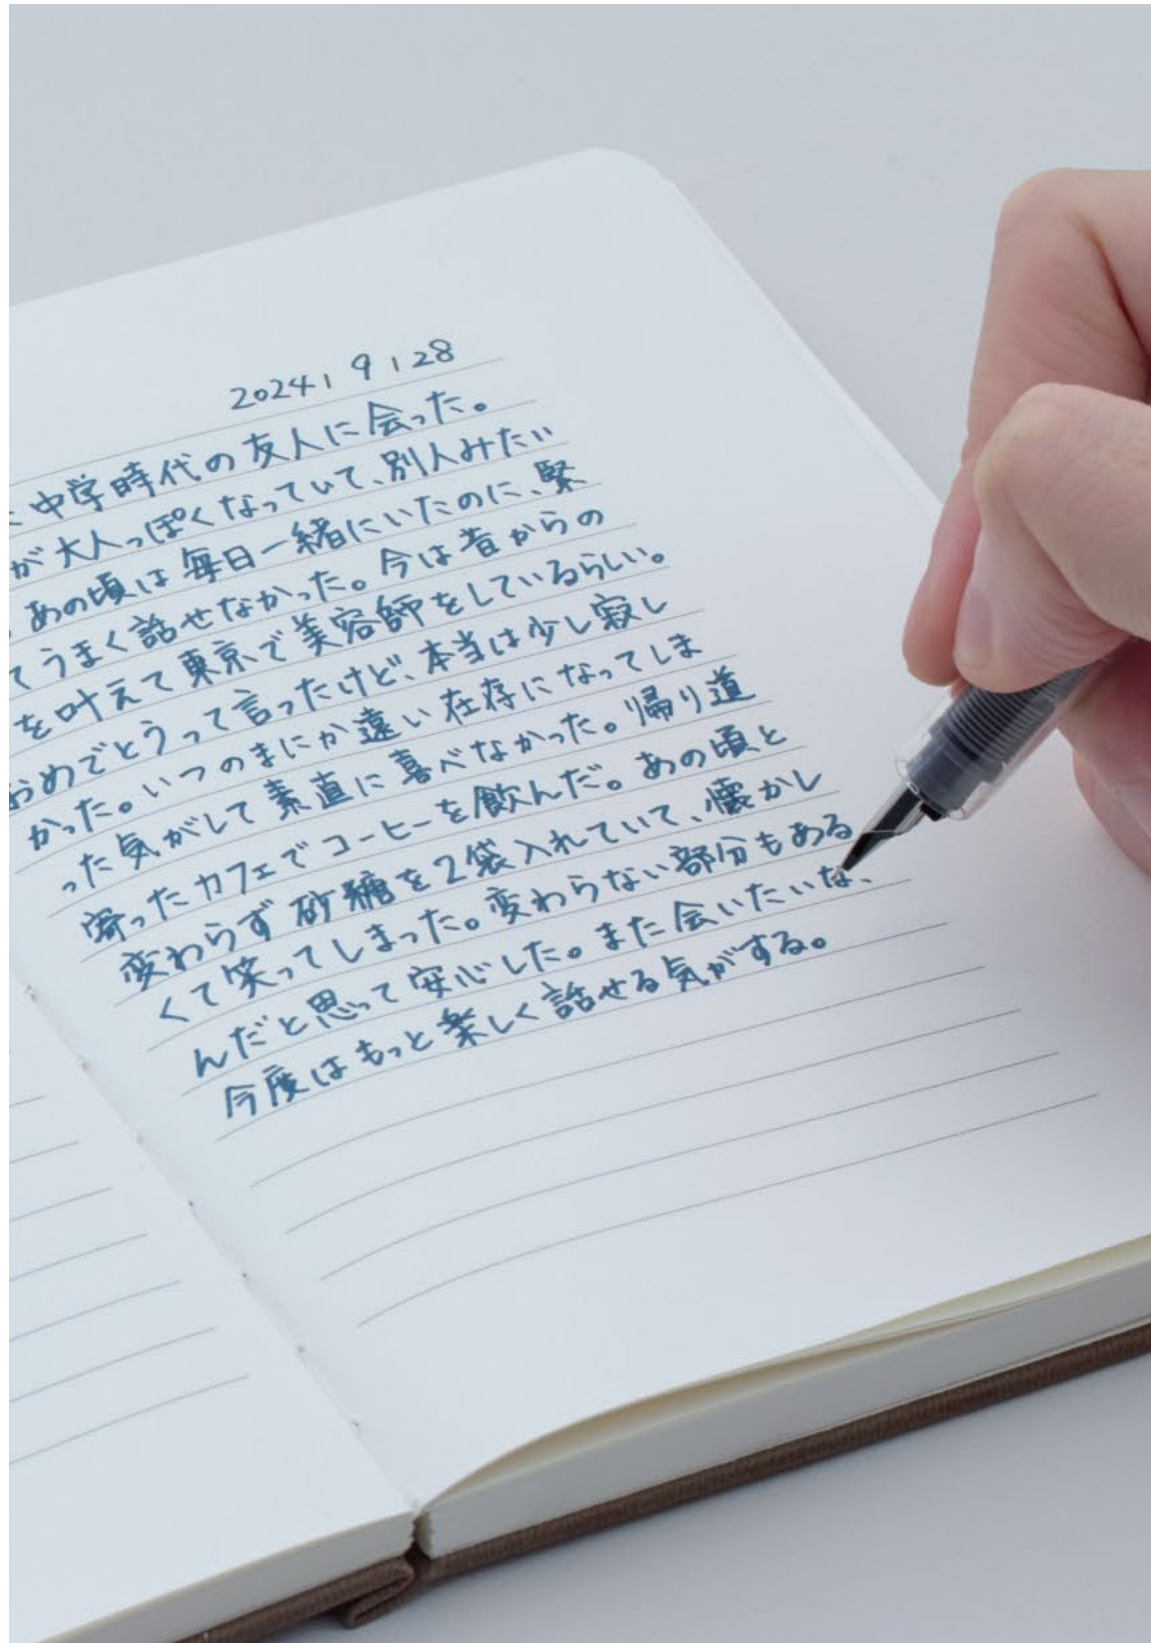 2024 | 9 | 28
中学時代の友人に会った。
が大人っぽくなっていて、別人みたい
あの頃は毎日一緒にいたのに、緊
てうまく話せなかった。今は昔からの
を叶えて東京で美容師をしているらしい。
おめでとうって言ったけど、本当は少し寂し
かった。いつのまにか遠い存在になってしま
った気がして素直に喜べなかった。帰り道
寄ったカフェでコーヒーを飲んだ。あの頃と
変わらず砂糖を2袋入れていて、懐かし
くて笑ってしまった。変わらない部分もある
んだと思って安心した。また会いたいな、
今度はもっと楽しく話せる気がする。